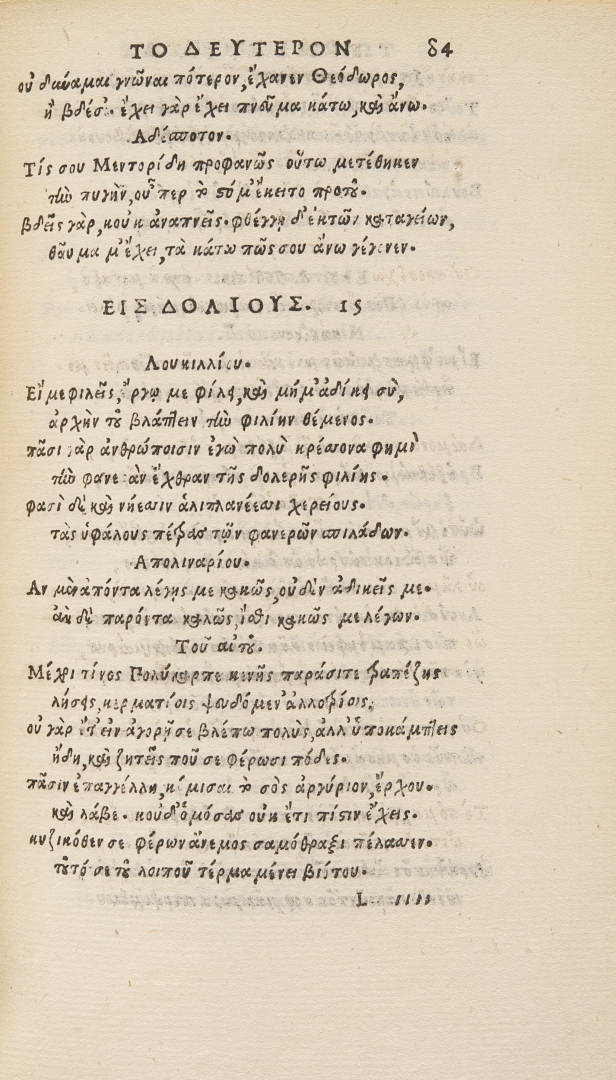 ΤΟ ΔΕΥΤΕΡΟΝ 84
οὐ δύναμαι γνῶναι πότερον, ἔχανεν Θεόδωρος,
ἢ βδέσ'. ἔχει γὰρ ἔχει πνεῦμα κάτω, καὶ ἄνω.
Ἀδέσποτον.
Τίς σου Μεντορίδη προφανῶς οὕτω μετέθηκεν
τὴν πυγὴν, οὗ περ τὸ στόμ' ἔκειτο προτοῦ.
βδεῖς γὰρ, κοὐκ ἀναπνεῖς. φθέγγῃ δ' ἐκ τῶν καταγείων,
θαῦμα μ' ἔχει, τὰ κάτω πῶς σου ἄνω γέγονεν.
ΕΙΣ ΔΟΛΙΟΥΣ. 15
Λουκιλλίου.
Εἴ με φιλεῖς, ἔργῳ με φίλει, καὶ μή μ' ἀδίκει σὺ,
ἀρχὴν τοῦ βλάπτειν τὴν φιλίην θέμενος.
πᾶσι γὰρ ἀνθρώποισιν ἐγὼ πολὺ κρέσσονα φημὶ
τὴν φανερὰν ἔχθραν τῆς δολερῆς φιλίης.
φασὶ δὲ καὶ νήεσσιν ἁλιπλανέεσσι χερείους.
τὰς ὑφάλους πέτρας τῶν φανερῶν σπιλάδων.
Ἀπολιναρίου.
Αν μὲν ἀπόντα λέγῃς με κακῶς, οὐδὲν ἀδικεῖς με.
ἂν δὲ παρόντα καλῶς, ἴσθι κακῶς με λέγων.
Τοῦ αὐτοῦ.
Μέχρι τίνος Πολύκαρπε κενῆς παράσιτε τραπέζης
λήσῃς, κερματίοις ψευδόμεν' ἀλλοτρίοις.
οὐ γὰρ ἔτ' εἰν ἀγορῇ σε βλέπω πολὺς, ἀλλ' ὑποκάμπτεις
ἤδη, καὶ ζητεῖς ποῦ σε φέρωσι πόδες.
πᾶσιν ἐπαγγέλλῃ, κόμισαι τὸ σὸς ἀργύριον, ἔρχου.
καὶ λάβε. κοὐδ' ὀμόσας οὐκ ἔτι πίστιν ἔχεις.
κυζικόθεν σε φέρων ἄνεμος σαμόθραξι πέλασσεν.
τοῦτό σε τοῦ λοιποῦ τέρμα μένει βιότου.
L iiii